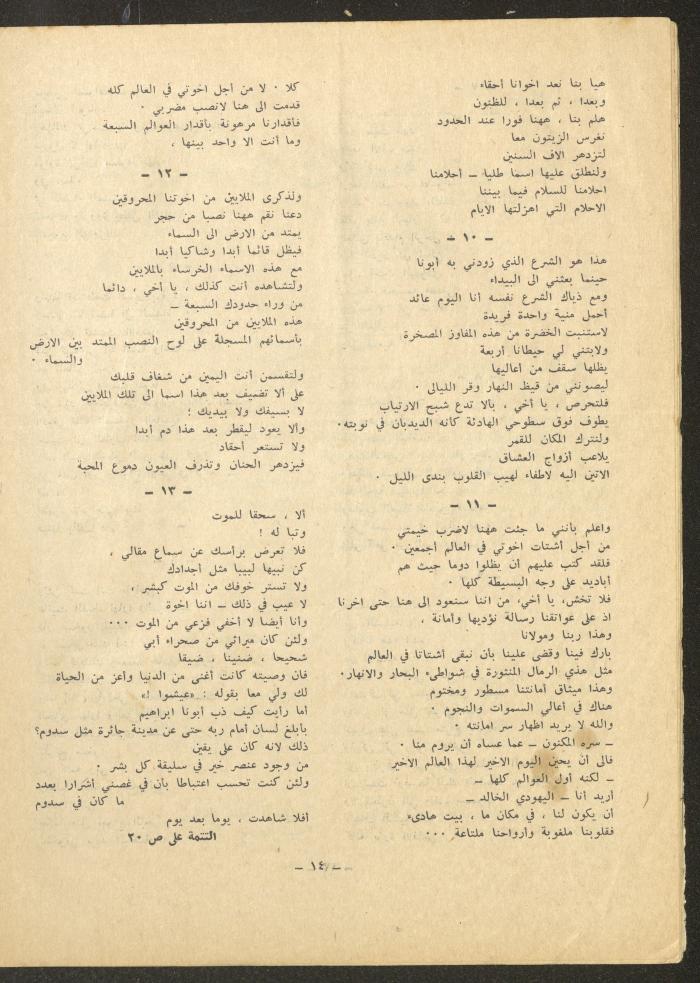 هيا بنا نعد اخوانا أحقاء
وبعدا ، ثم بعدا ، للظنون
هلم بنا ، ههنا فورا عند الحدود
نغرس الزيتون معا
لتزدهر الاف السنين
ولنطلق عليها اسما طليا ــ أحلامنا
احلامنا للسلام فيما بيننا
الاحلام التي اهزلتها الايام
ــ ١٠ ــ
هذا هو الشرع الذي زودني به أبونا
حينما بعثني الى البيداء
ومع ذياك الشرع نفسه أنا اليوم عائد
أحمل منية واحدة فريدة
لاستنبت الخضرة من هذه المفاوز المصخرة
ولابتني لي حيطانا أربعة
يظلها سقف من أعاليها
ليصونني من قيظ النهار وقر الليالى ٠
فلتحرص ، يا أخي ، بألا تدع شبح الارتياب
يطوف فوق سطوحي الهادئة كأنه الديدبان في نوبته٠
ولنترك المكان للقمر
يلاعب أزواج العشاق
الاتين اليه لاطفاء لهيب القلوب بندى الليل ٠
ــ ١١ ــ
واعلم بأنني ما جئت ههنا لاضرب خيمتي
من أجل أشتات اخوتي في العالم أجمعين ٠
فلقد كتب عليهم أن يظلوا دوما حيث هم
أباديد على وجه البسيطة كلها ٠
فلا تخش، يا أخي، من اننا سنعود الى هنا حتى اخرنا
اذ على عواتقنا رسالة نؤديها وأمانة ،
وهذا ربنا ومولانا
بارك فينا وقضى علينا بأن نبقى أشتاتا في العالم
مثل هذي الرمال المنثورة في شواطىء البحار والانهار٠
وهذا ميثاق أمانتنا مسطور ومختوم
هناك في أعالي السموات والنجوم ٠
والله لا يريد اظهار سر امانته ٠
ــ سره المكنون ــ عما عساه أن يروم منا ٠
فالى أن يحين اليوم الاخير لهذا العالم الاخير
ــ لكنه أول العوالم كلها ــ
أريد أنا ــ اليهودي الخالد ــ
أن يكون لنا ، في مكان ما ، بيت هادىء
فقلوبنا ملغوبة وأرواحنا ملتاعة ٠٠٠
كلا ٠ لا من أجل اخوتي في العالم كله
قدمت الى هنا لانصب مضربي ٠
فأقدارنا مرهونة بأقدار العوالم السبعة
وما أنت الا واحد بينها ،
ــ ١٢ ــ
ولذكرى الملايين من اخوتنا المحروقين
دعنا نقم ههنا نصبا من حجر
يمتد من الارض الى السماء
فيظل قائما أبدا وشاكيا أبدا
مع هذه الاسماء الخرساء بالملايين
ولتشاهده أنت كذلك ، يا أخي ، دائما
من وراء حدودك السبعة ــ
هذه الملايين من المحروقين
بأسمائهم المسجلة على لوح النصب الممتد بين الارض
والسماء ٠
ولتقسمن أنت اليمين من شغاف قلبك
على ألا تضيف بعد هذا اسما الى تلك الملايين
لا بسيفك ولا بيديك ؛
وألا يعود ليقطر بعد هذا دم أبدا
ولا تستعر أحقاد
فيزدهر الحنان وتذرف العيون دموع المحبة
ــ ١٣ ــ
ألا ، سحقا للموت
وتبا له !
فلا تعرض برأسك عن سماع مقالي ،
كن نبيها لبيبا مثل أجدادك
ولا تستر خوفك من الموت كبشر ،
لا عيب في ذلك ــ اننا اخوة
وأنا أيضا لا أخفي فزعي من الموت ٠٠٠
ولئن كان ميراثي من صحراء أبي
شحيحا ، ضنينا ، ضيقا
فان وصيته كانت أغنى من الدنيا وأعز من الحياة
لك ولي معا بقوله : «عيشوا !»
أما رأيت كيف ذب أبونا ابراهيم
بأبلغ لسان أمام ربه حتى عن مدينة جائرة مثل سدوم؟
ذلك لانه كان على يقين
من وجود عنصر خير في سليقة كل بشر ٠
ولئن كنت تحسب اعتباطا بأن في غصني أشرارا بعدد
ما كان في سدوم
أفلا شاهدت ، يوما بعد يوم
التتمة على ص ٢٠
ــ ١٤ ــ